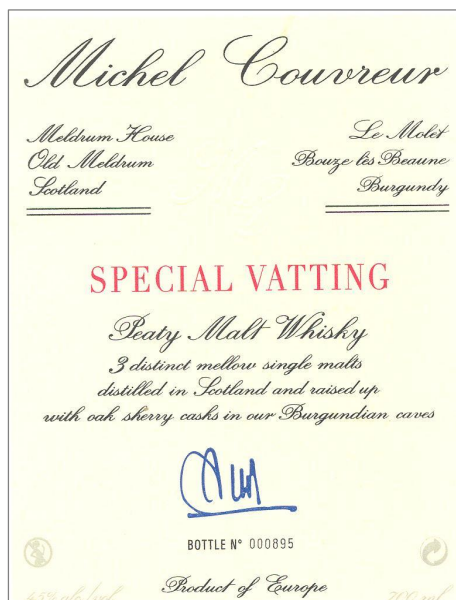 Michel Couvreur
Meldrum House
Old Meldrum
Scotland
Le Molet
Bouze lès Beaune
Burgundy
SPECIAL VATTING
Peaty Malt Whisky
3 distinct mellow single malts
distilled in Scotland and raised up
with oak sherry casks in our Burgundian caves
BOTTLE N° 000895
45% alc/vol
Product of Europe
700 ml